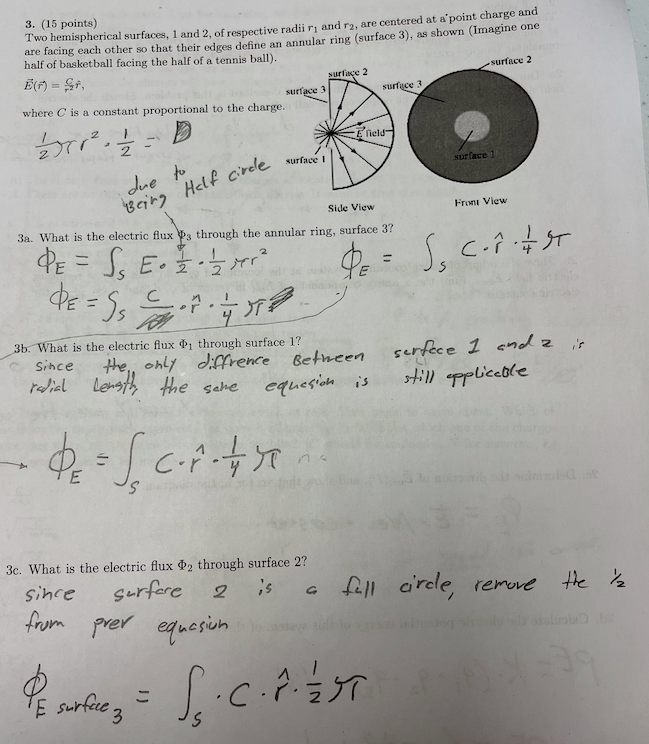 3. (15 points)
Two hemispherical surfaces, 1 and 2, of respective radii r₁ and r₂, are centered at a point charge and
are facing each other so that their edges define an annular ring (surface 3), as shown (Imagine one
half of basketball facing the half of a tennis ball).
E⃗(r⃗) = C/r² r̂,
where C is a constant proportional to the charge.
surface 2
surface 3
E⃗ field
surface 1
Side View
surface 3
surface 2
surface 1
Front View
1/2 πr² · 1/2 =
due to
Being Half circle
3a. What is the electric flux Φ₃ through the annular ring, surface 3?
ϕE = ∫s E · 1/2 · 1/2 πr²
ϕE = ∫s C · r̂ · 1/4 π
ϕE = ∫s C · r̂ · 1/4 π
3b. What is the electric flux Φ₁ through surface 1?
Since the only diffrence Between surfece 1 and 2 is
radial Length, the same equesion is still applicable
→ ϕE = ∫s C · r̂ · 1/4 π
3c. What is the electric flux Φ₂ through surface 2?
since surfere 2 is a full circle, remove the 1/2
from prev equasiun
ϕE surface 3 = ∫s · C · r̂ · 1/2 π